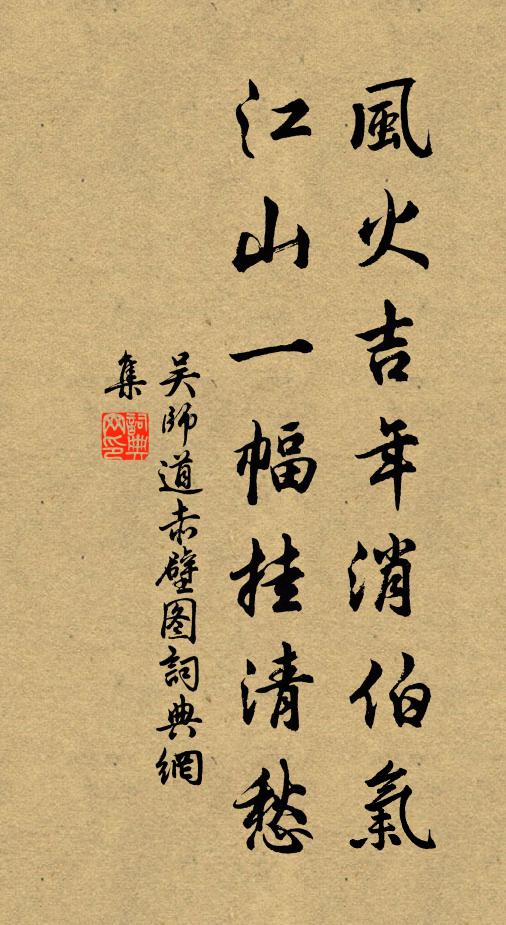 風火吉年消伯氣
江山一幅挂清愁
吴師道赤壁图詞典網
集
詞典网印